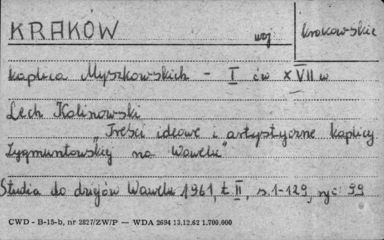 KRAKÓW woj. krakowskie
kaplica Myszkowskich - I ćw XVII w
Lech Kalinowski
"Treści ideowe i artystyczne kaplicy
Zygmuntowskiej na Wawelu"
Studia do dziejów Wawelu 1961, t. II, s. 1-129, ryc. 99
CWD - B-15-b, nr 2827/ZW/P — WDA 2694 13.12.62 1.700.000